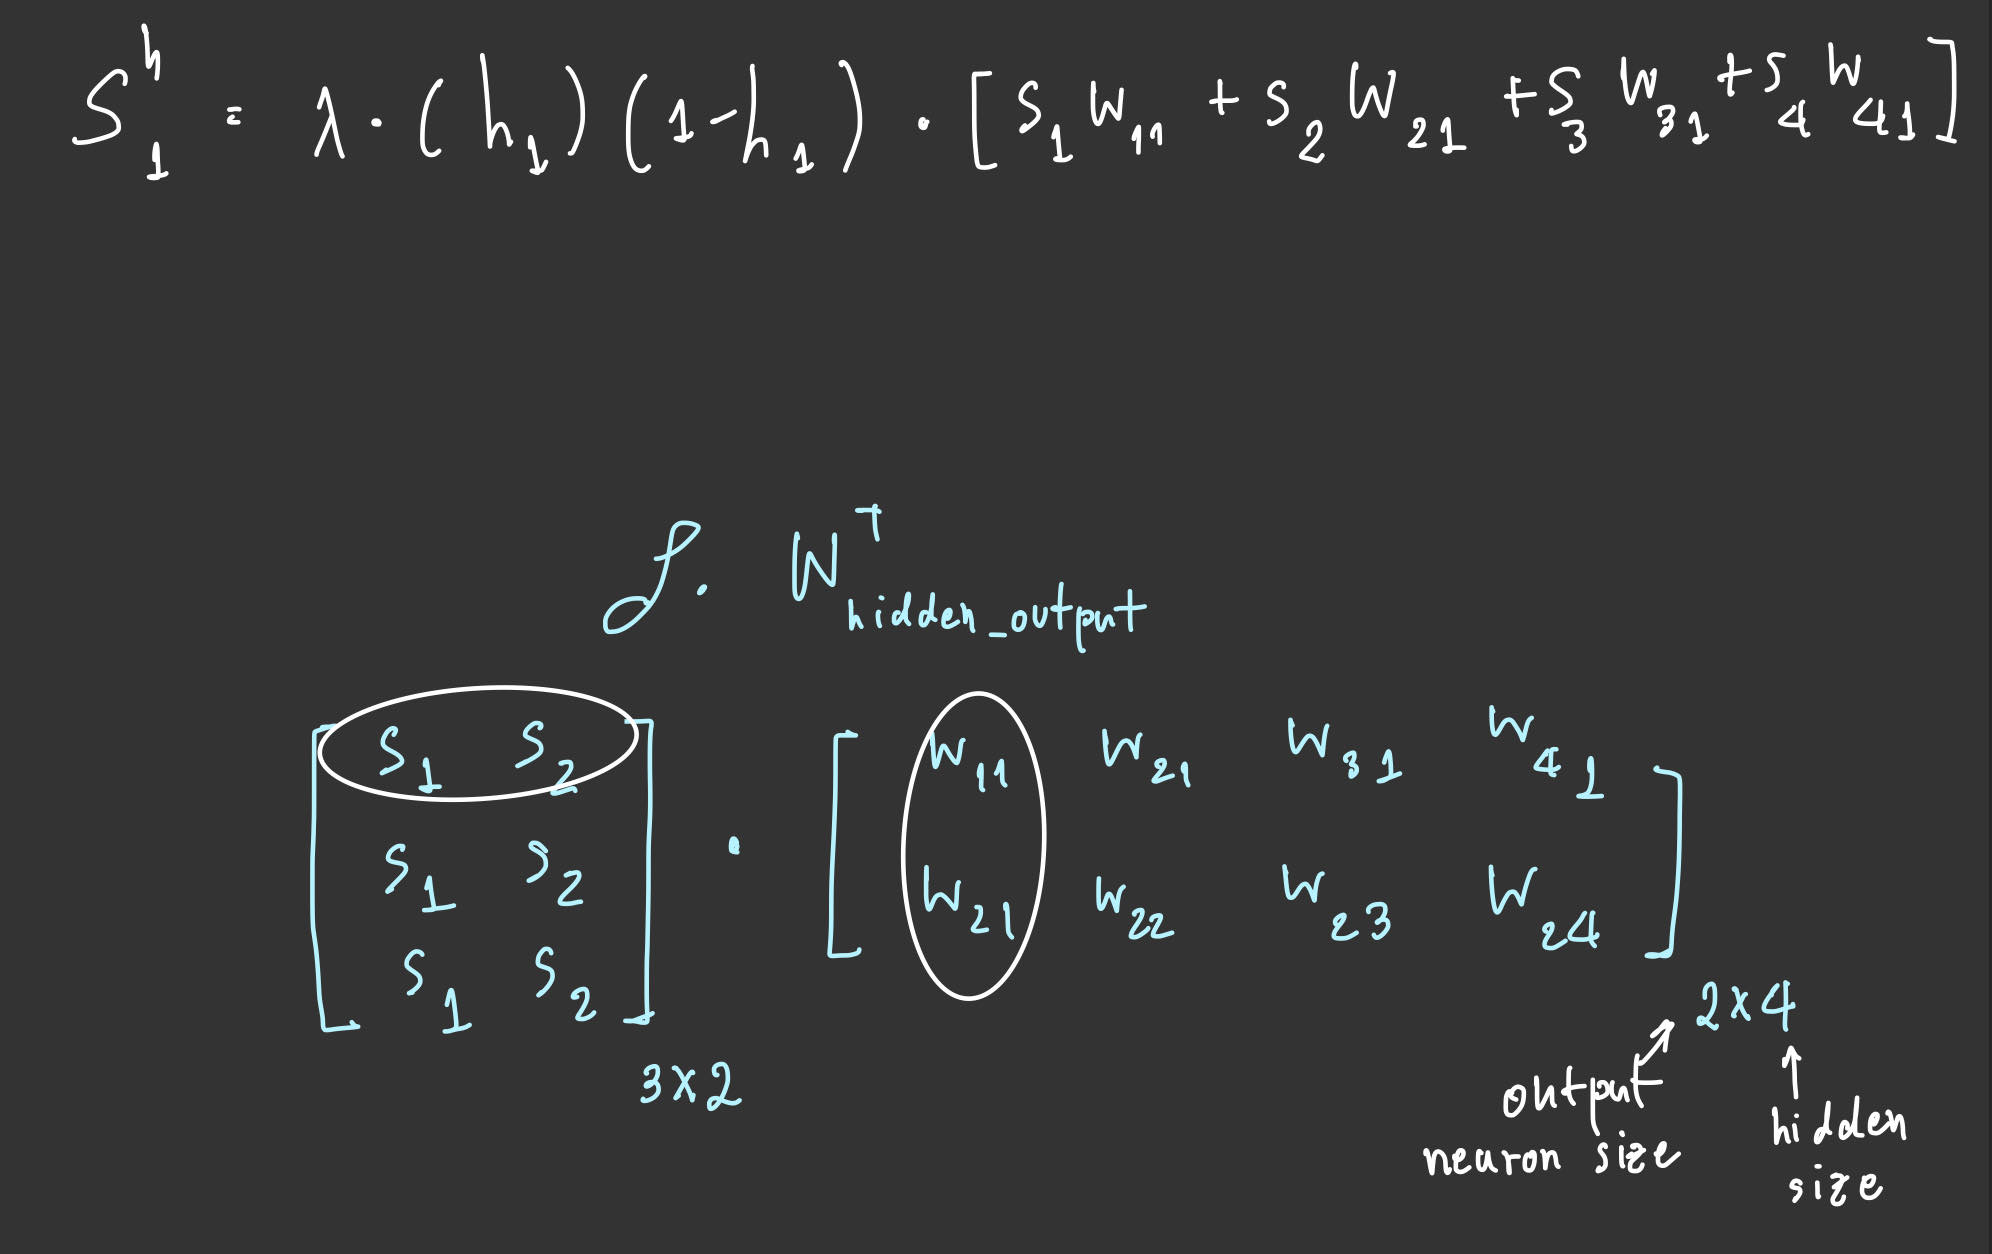 S₁ʰ = λ · (h₁)(1-h₁) · [S₁W₁₁ + S₂W₂₁ + S₃W₃₁ + S₄W₄₁]
𝒮. Wᵀhidden_output
[S₁ S₂] · [W₁₁ W₂₁ W₃₁ W₄₁]
S₁ S₂ W₂₁ W₂₂ W₂₃ W₂₄
S₁ S₂
3×2
2×4
output
neuron size
hidden
size